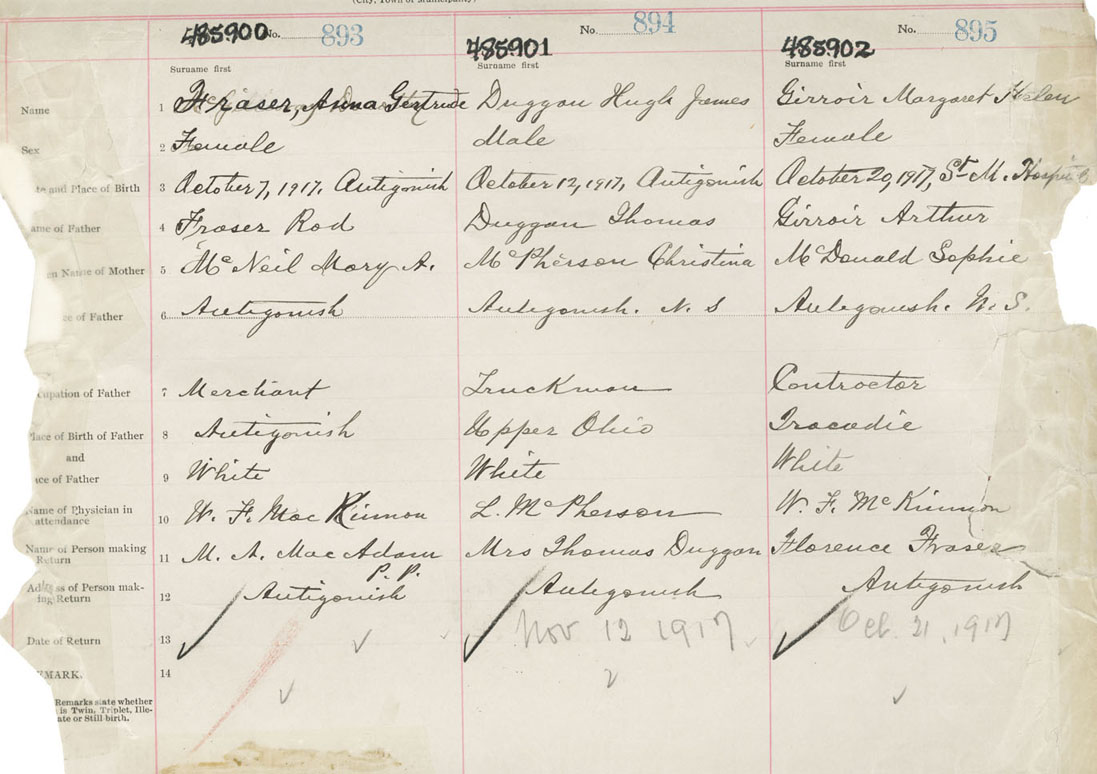 (City, Town or Municipality)
485900 No. 893 485901 No. 894 485902 No. 895
Surname first Surname first Surname first
Name 1 Fraser, Anna Gertrude Duggan Hugh James Girroir Margaret Helen
Sex 2 Female Male Female
te and Place of Birth 3 October 7, 1917, Antigonish October 12, 1917, Antigonish October 20, 1917, St. M. Hospital
ame of Father 4 Fraser Rod Duggan Thomas Girroir Arthur
en Name of Mother 5 McNeil Mary A. McPherson Christina McDonald Sophie
ce of Father 6 Antigonish Antigonish. N. S Antigonish. N. S.
cupation of Father 7 Merchant Truckman Contractor
lace of Birth of Father 8 Antigonish Upper Ohio Tracadie
and
ace of Father 9 White White White
Name of Physician in
attendance 10 W. F. Mac Kinnon L. McPherson W. F. McKinnon
Name of Person making
Return 11 M. A. MacAdam Mrs Thomas Duggan Florence Fraser
P. P.
Address of Person mak-
ing Return 12 Antigonish Antigonish Antigonish
Date of Return 13 Nov 12 1917 Oct. 21, 1917
EMARK. 14
Remarks state whether
is Twin, Triplet, Ille-
ate or Still-birth.